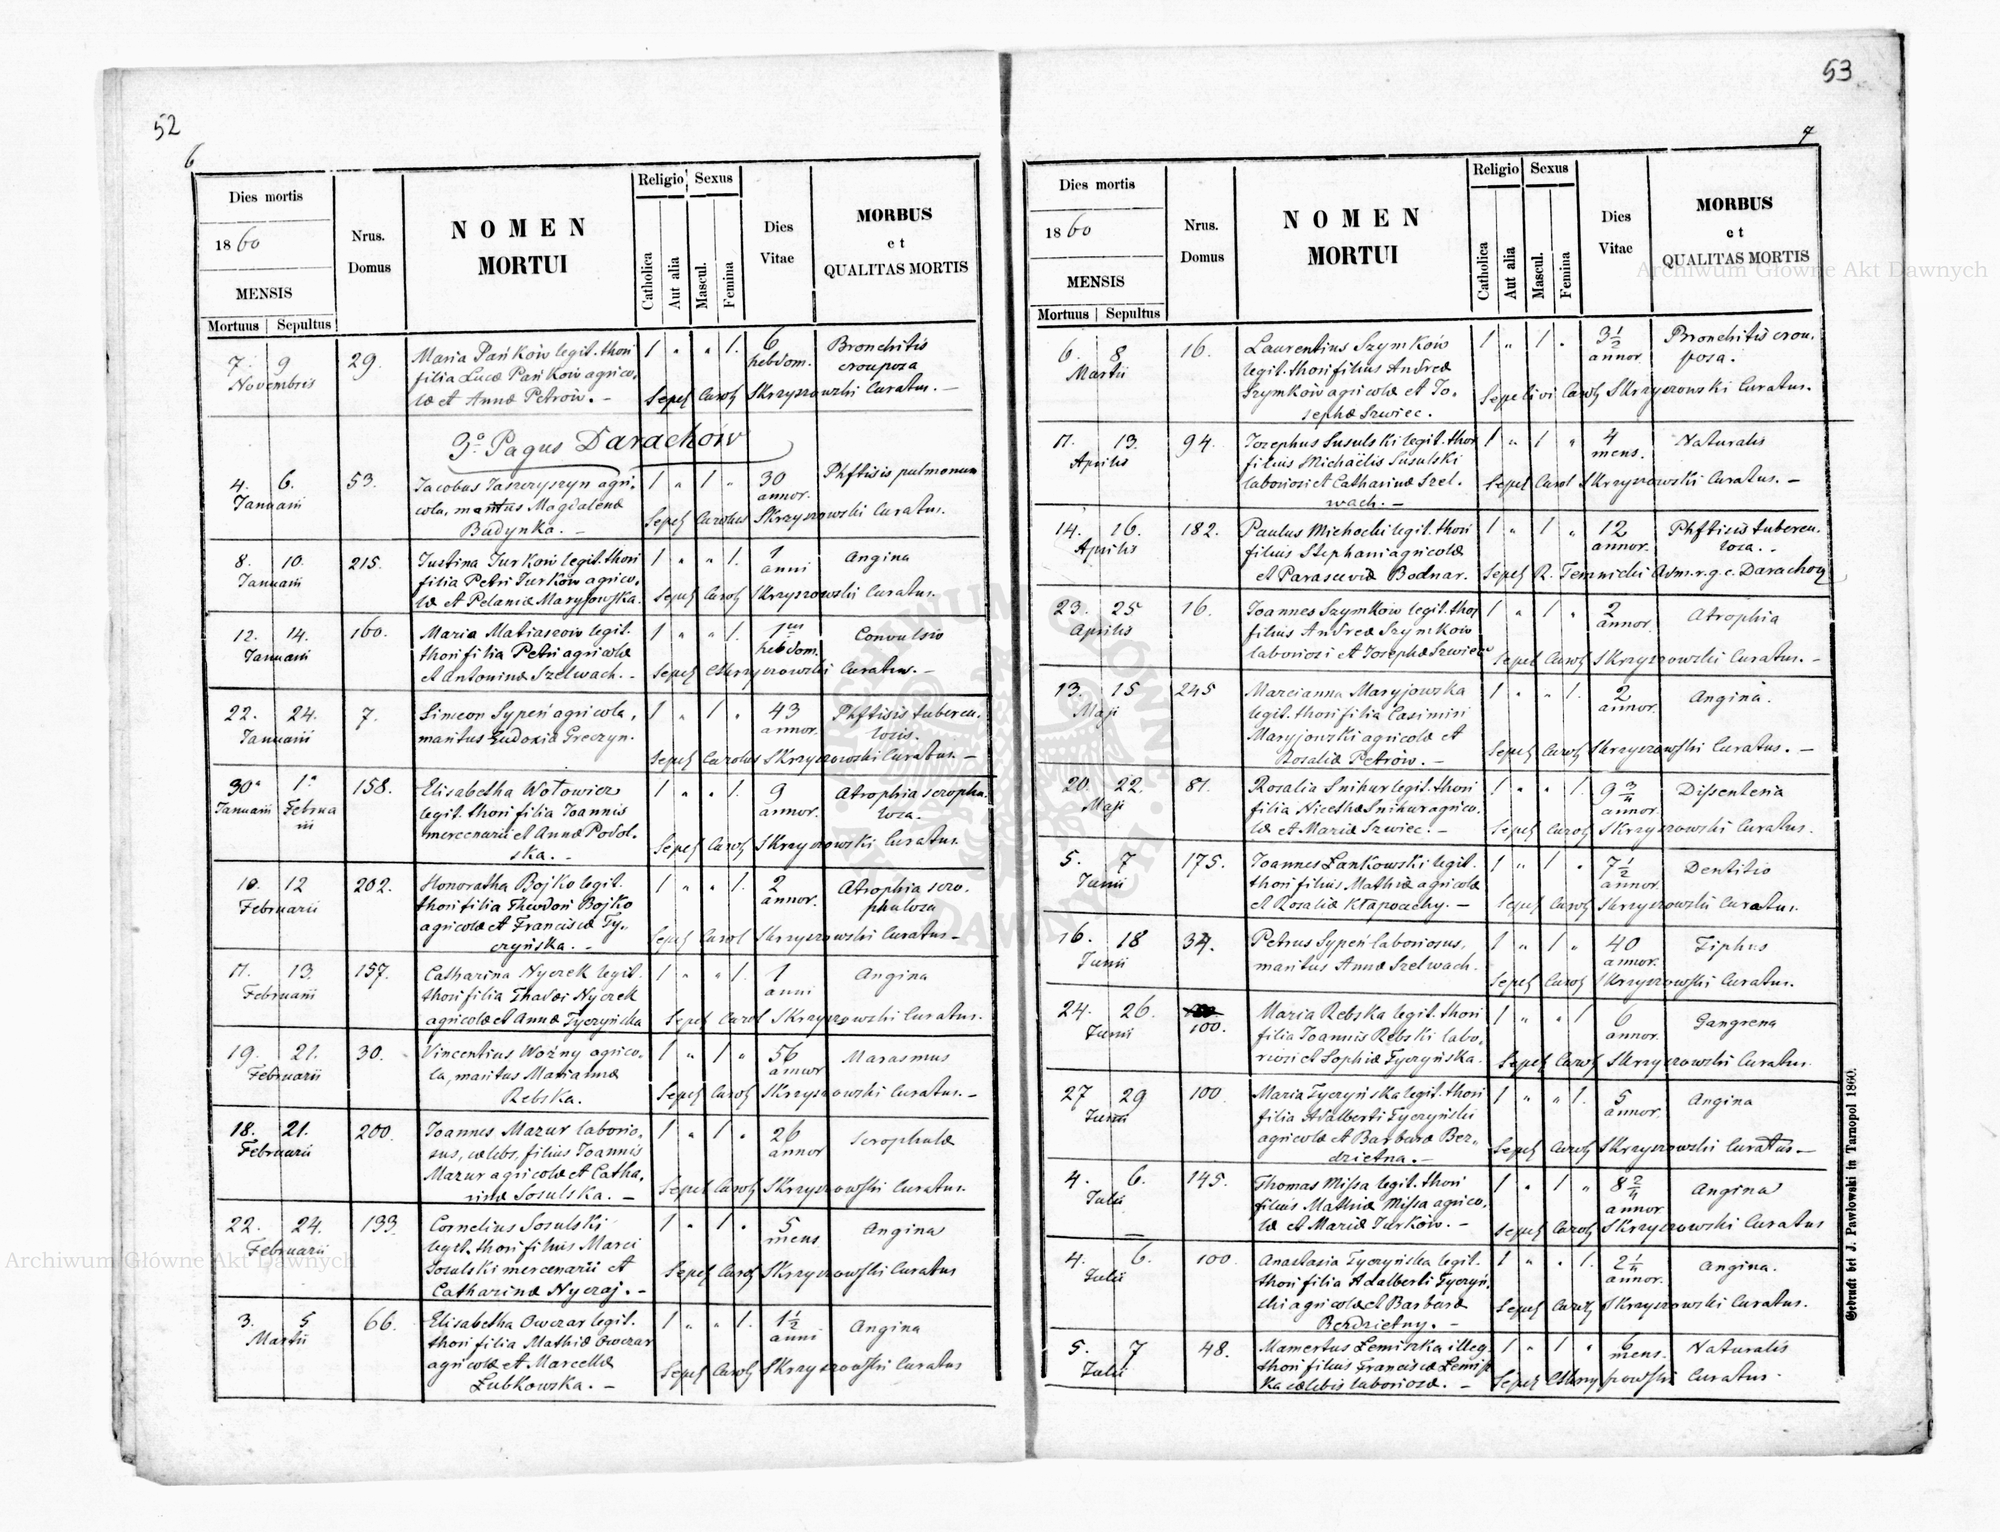 52
6
Dies mortis
1860
MENSIS
Mortuus Sepultus
Nrus.
Domus
NOMEN
MORTUI
Religio Sexus
Catholica
Aut alia
Mascul.
Femina
Dies
Vitae
MORBUS
et
QUALITAS MORTIS
7. 9 29. Maria Pańków legit. thori 1 " " 1. 6 Bronchitis
Novembris filia Lucæ Pańków agrico- hebdom. crouposa
læ et Annæ Petrów. – Sepel Carol Skrzyszowski Curatus. –
3º Pagus Darachów
4. 6. 53. Jacobus Jaszczyszyn agri- 1 " 1 " 30 Phftisis pulmonum
Januarii cola, maritus Magdalenæ annor.
Budynka. – Sepel Carolus Skrzyszowski Curatus.
8. 10. 215. Justina Jurków legit. thori 1 " " 1. 1 Angina
Januarii filia Petri Jurków agrico- anni
læ et Pelaniæ Maryjowska. Sepel Carol Skrzyszowski Curatus.
12. 14. 160. Maria Matiaszów legit. 1 " " 1. 1us Convulsio
Januarii thori filia Petri agricolæ hebdom.
et Antoninæ Szelwach. – Sepel CSkrzyszowski Curatus. –
22. 24. 7. Simeon Sypeń agricola, 1 " 1 " 43 Phftisis tubercu-
Januarii maritus Eudoxiæ Greczyn. annor. losis.
Sepel Carolus Skrzyszowski Curatus. –
30 1 158. Elisabetha Wołowicz 1 " " 1. 9 Atrophia scropha
Januarii Februa legit. thori filia Joannis annor. losa.
rii mercenarii et Annæ Podol-
ska. – Sepel Carol Skrzyszowski Curatus.
10. 12 202. Honoratha Bojko legit. 1 " " 1. 2 Atrophia scro-
Februarii thori filia Theodori Bojko annor. phulosa
agricolæ et Franciscæ Ty-
czyńska. – Sepel Carol Skrzyszowski Curatus –
11. 13. 157. Catharina Nyczek legit. 1 " " 1. 1 Angina
Februarii thori filia Thadæi Nyczek anni
agricolæ et Annæ Tyczyńska Sepel Carol Skrzyszowski Curatus.
19. 21. 30. Vincentius Woźny agrico- 1 " 1 " 56 Marasmus
Februarii la, maritus Mariannæ annor
Rebska. Sepel Carol Skrzyszowski Curatus. –
18. 21. 200. Joannes Mazur laborio- 1 " 1 " 26 Scrophulæ
Februarii sus, cælebs, filius Joannis annor
Mazur agricolæ et Catha-
rinæ Sosulska. – Sepel Carol Skrzyszowski Curatus.
22. 24. 133. Cornelius Sosulski 1 " 1 " 5 Angina
Februarii legit. thori filius Marci mens
Sosulski mercenarii et
Catharinæ Nyczaj. – Sepel Carol Skrzyszowski Curatus
3. 5 66. Elisabetha Owczar legit. 1 " " 1. 1½ Angina
Martii thori filia Mathiæ Owczar anni
agricolæ et Marcellæ
Lubkowska. – Sepel Carol Skrzyszowski Curatus
53
7
Dies mortis
1860
MENSIS
Mortuus Sepultus
Nrus.
Domus
NOMEN
MORTUI
Religio Sexus
Catholica
Aut alia
Mascul.
Femina
Dies
Vitae
MORBUS
et
QUALITAS MORTIS
6. 8 16. Laurentius Szymków 1 " 1 " 3½ Bronchitis crou-
Martii legit. thori filius Andreæ annor. posa.
Szymków agricolæ et Jo- Sepelivi Carol Skrzyszowski Curatus.
sephæ Szwiec.
11. 13. 94. Josephus Susulski legit. thor 1 " 1 " 4 Naturalis
Aprilis filius Michaëlis Susulski mens.
laboriosi et Catharinæ Szel- Sepel Carol Skrzyszowski Curatus. –
wach. –
14. 16. 182. Paulus Michocki legit. thori 1 " 1 " 12 Phftisis tubercu-
Aprilis filius Stephani agricolæ annor. losa. .
et Parasceviæ Bodnar. Sepel R. Temnicki Adm. r. g. c. Darachov
23. 25 16. Joannes Szymków legit. thor 1 " 1 " 2 Atrophia
Aprilis filius Andreæ Szymków annor.
laboriosi et Josephæ Szwiec Sepel Carol Skrzyszowski Curatus. –
13. 15 245 Marcianna Maryjowska 1 " " 1. 2 Angina.
Maji legit. thori filia Casimiri annor.
Maryjowski agricolæ et
Rosaliæ Petrów. – Sepel Carol Skrzyszowski Curatus. –
20. 22. 81. Rosalia Snihur legit. thori 1 " " 1. 9¾ Dissenteria
Maji filia Nicethæ Snihur agrico- annor.
læ et Mariæ Szwiec. – Sepel Carol Skrzyszowski Curatus.
5. 7 175. Joannes Lankowski legit. 1 " 1 " 7½ Dentitio
Junii thori filius Mathiæ agricolæ annor.
et Rosaliæ Kłapouchy. – Sepel Carol Skrzyszowski Curatus.
16. 18 34. Petrus Sypeń laboriosus, 1 " 1 " 40 Tiphus
Junii maritus Annæ Szelwach. annor.
Sepel Carol Skrzyszowski Curatus.
24. 26. 100. Maria Rebska legit. thori 1 " " 1 6 Gangrena
Junii filia Joannis Rebski labo- annor.
riosi et Sophiæ Tyczyńska. Sepel Carol Skrzyszowski Curatus.
27 29 100. Maria Tyczyńska legit. thori 1 " " 1. 5 Angina
Junii filia Adalberti Tyczyński annor.
agricolæ et Barbaræ Ber-
dzietna. – Sepel Carol Skrzyszowski Curatus –
4. 6. 145. Thomas Missa legit. thori 1 " 1 " 8 2/4 Angina
Julii filius Mathiæ Missa agrico- annor
læ et Mariæ Jurków. – Sepel Carol Skrzyszowski Curatus
4. 6. 100. Anastasia Tyczyńska legit. 1 " " 1. 2¼ Angina.
Julii thori filia Adalberti Tyczyń- annor.
ski agricolæ et Barbaræ
Berdzietny. – Sepel Carol Skrzyszowski Curatus.
5. 7 48. Mamertus Lemiszka illeg. 1 " 1 " 6 Naturalis
Julii thori filius Franciscæ Lemisz mens.
ka cælebis laboriosæ. – Sepel CSkrzyszowski Curatus.
Gedruckt bei J. Pawłowski in Tarnopol 1860.
Archiwum Główne Akt Dawnych
Archiwum Główne Akt Dawnych
ARCHIWUM GŁÓWNE AKT DAWNYCH